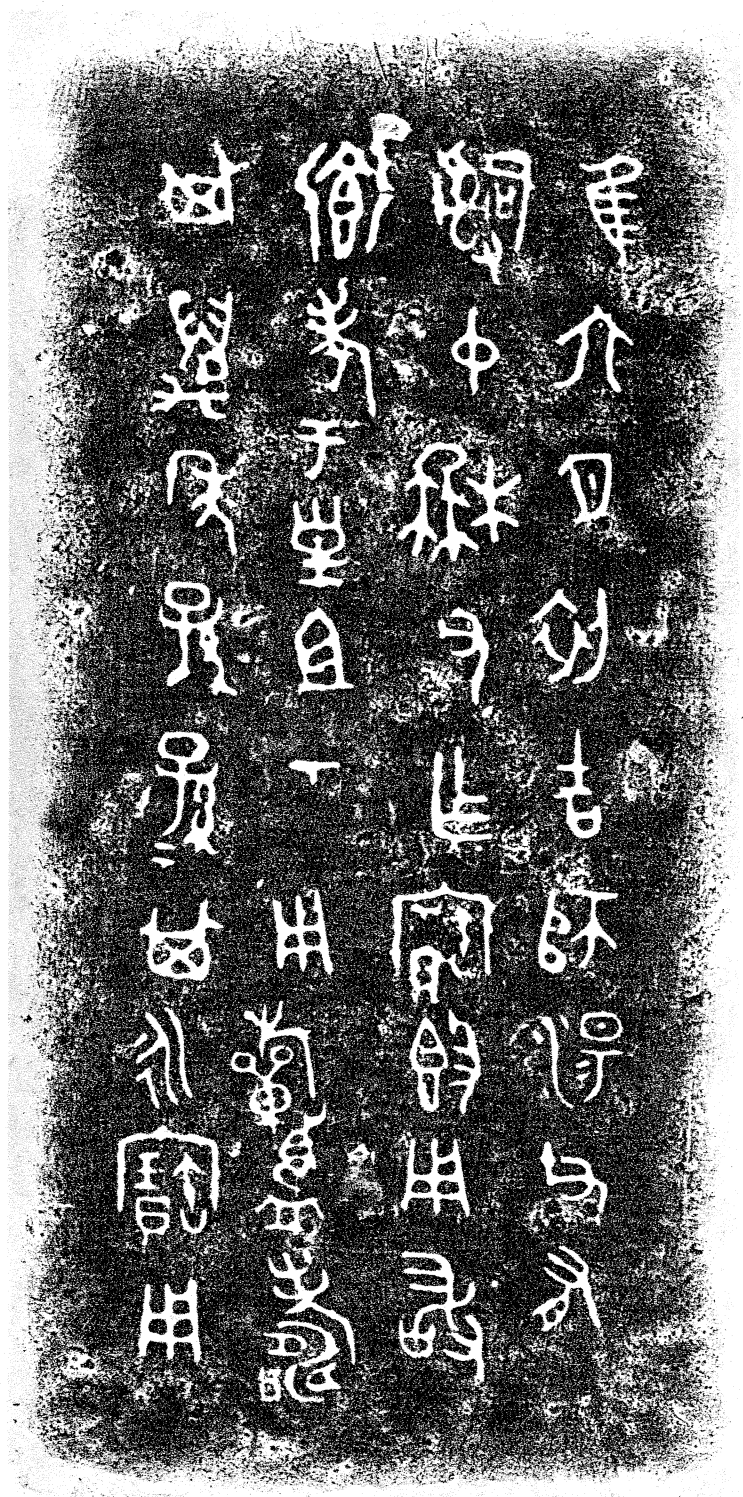 隹六月初吉師湯父有
𤔲中枏父乍寶𣪘用敢
鄉孝于皇且丂用𣄨眉壽
其萬年孫孫其永寶用